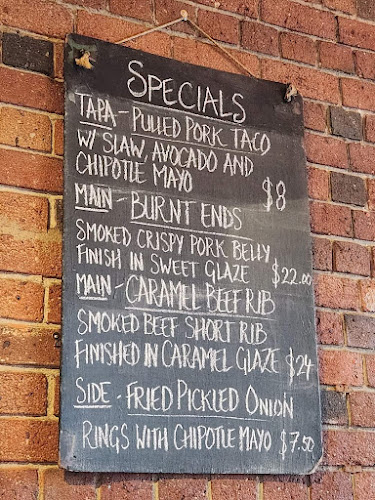 SPECIALS
TAPA - PULLED PORK TACO
W/ SLAW, AVOCADO AND
CHIPOTLE MAYO $8
MAIN - BURNT ENDS
SMOKED CRISPY PORK BELLY
FINISH IN SWEET GLAZE $22.00
MAIN - CARAMEL BEEF RIB
SMOKED BEEF SHORT RIB
FINISHED IN CARAMEL GLAZE $24
SIDE - FRIED PICKLED ONION
RINGS WITH CHIPOTLE MAYO $7.50